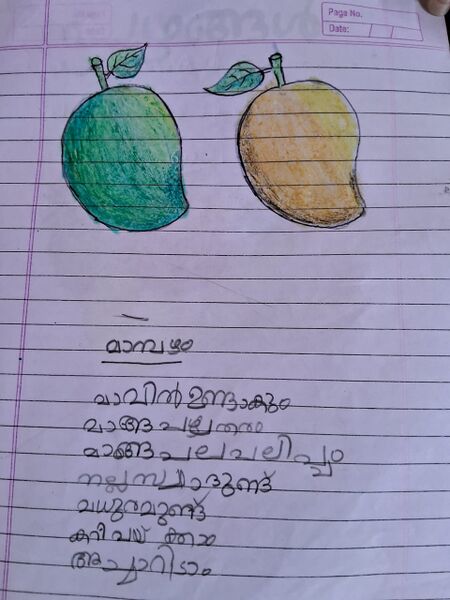 Page No.
Date:
മാമ്പഴം
മാവിൽ ഉണ്ടാകും
മാങ്ങ പഴുത്താൽ
മാങ്ങ പല വലിപ്പം
നല്ല സ്വാദുണ്ട്
മധുരമുണ്ട്
കറി വയ്ക്കാം
അച്ചാറിടാം